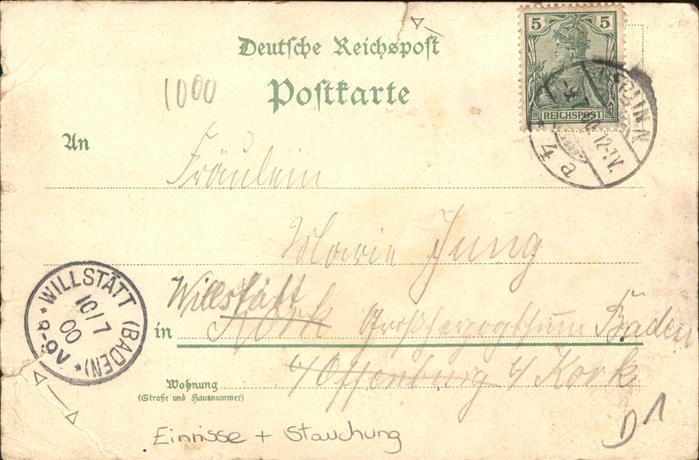 Deutsche Reichspost
Postkarte
1000
5 5
REICHSPOST
BERLIN N
12-1V.
4 a
An
Fräulein
Marie Jung
Willstätt
in Kork Großherzogthum Baden
WILLSTÄTT (BADEN)
10/7
00
8-9V
Wohnung
(Straße und Hausnummer)
b/Offenburg b/ Kork
Einrisse + Stauchung
D 1